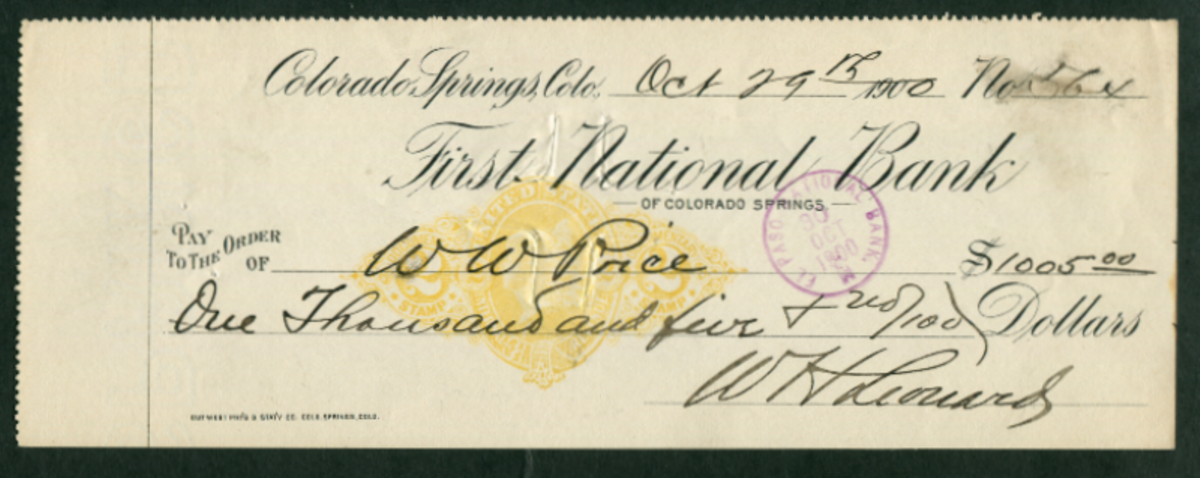 Colorado Springs, Colo. Oct 29th 1900 No 564
First National Bank
OF COLORADO SPRINGS
PAY TO THE ORDER OF W W Price $1005 00
One Thousand and five + no/100 Dollars
W H Leonard
UNITED STATES
2 2
STAMP STAMP
EL PASO NATIONAL BANK.
30
OCT
1900
OUT WEST PRT'G & STAT'Y CO. COLO. SPRINGS, COLO.